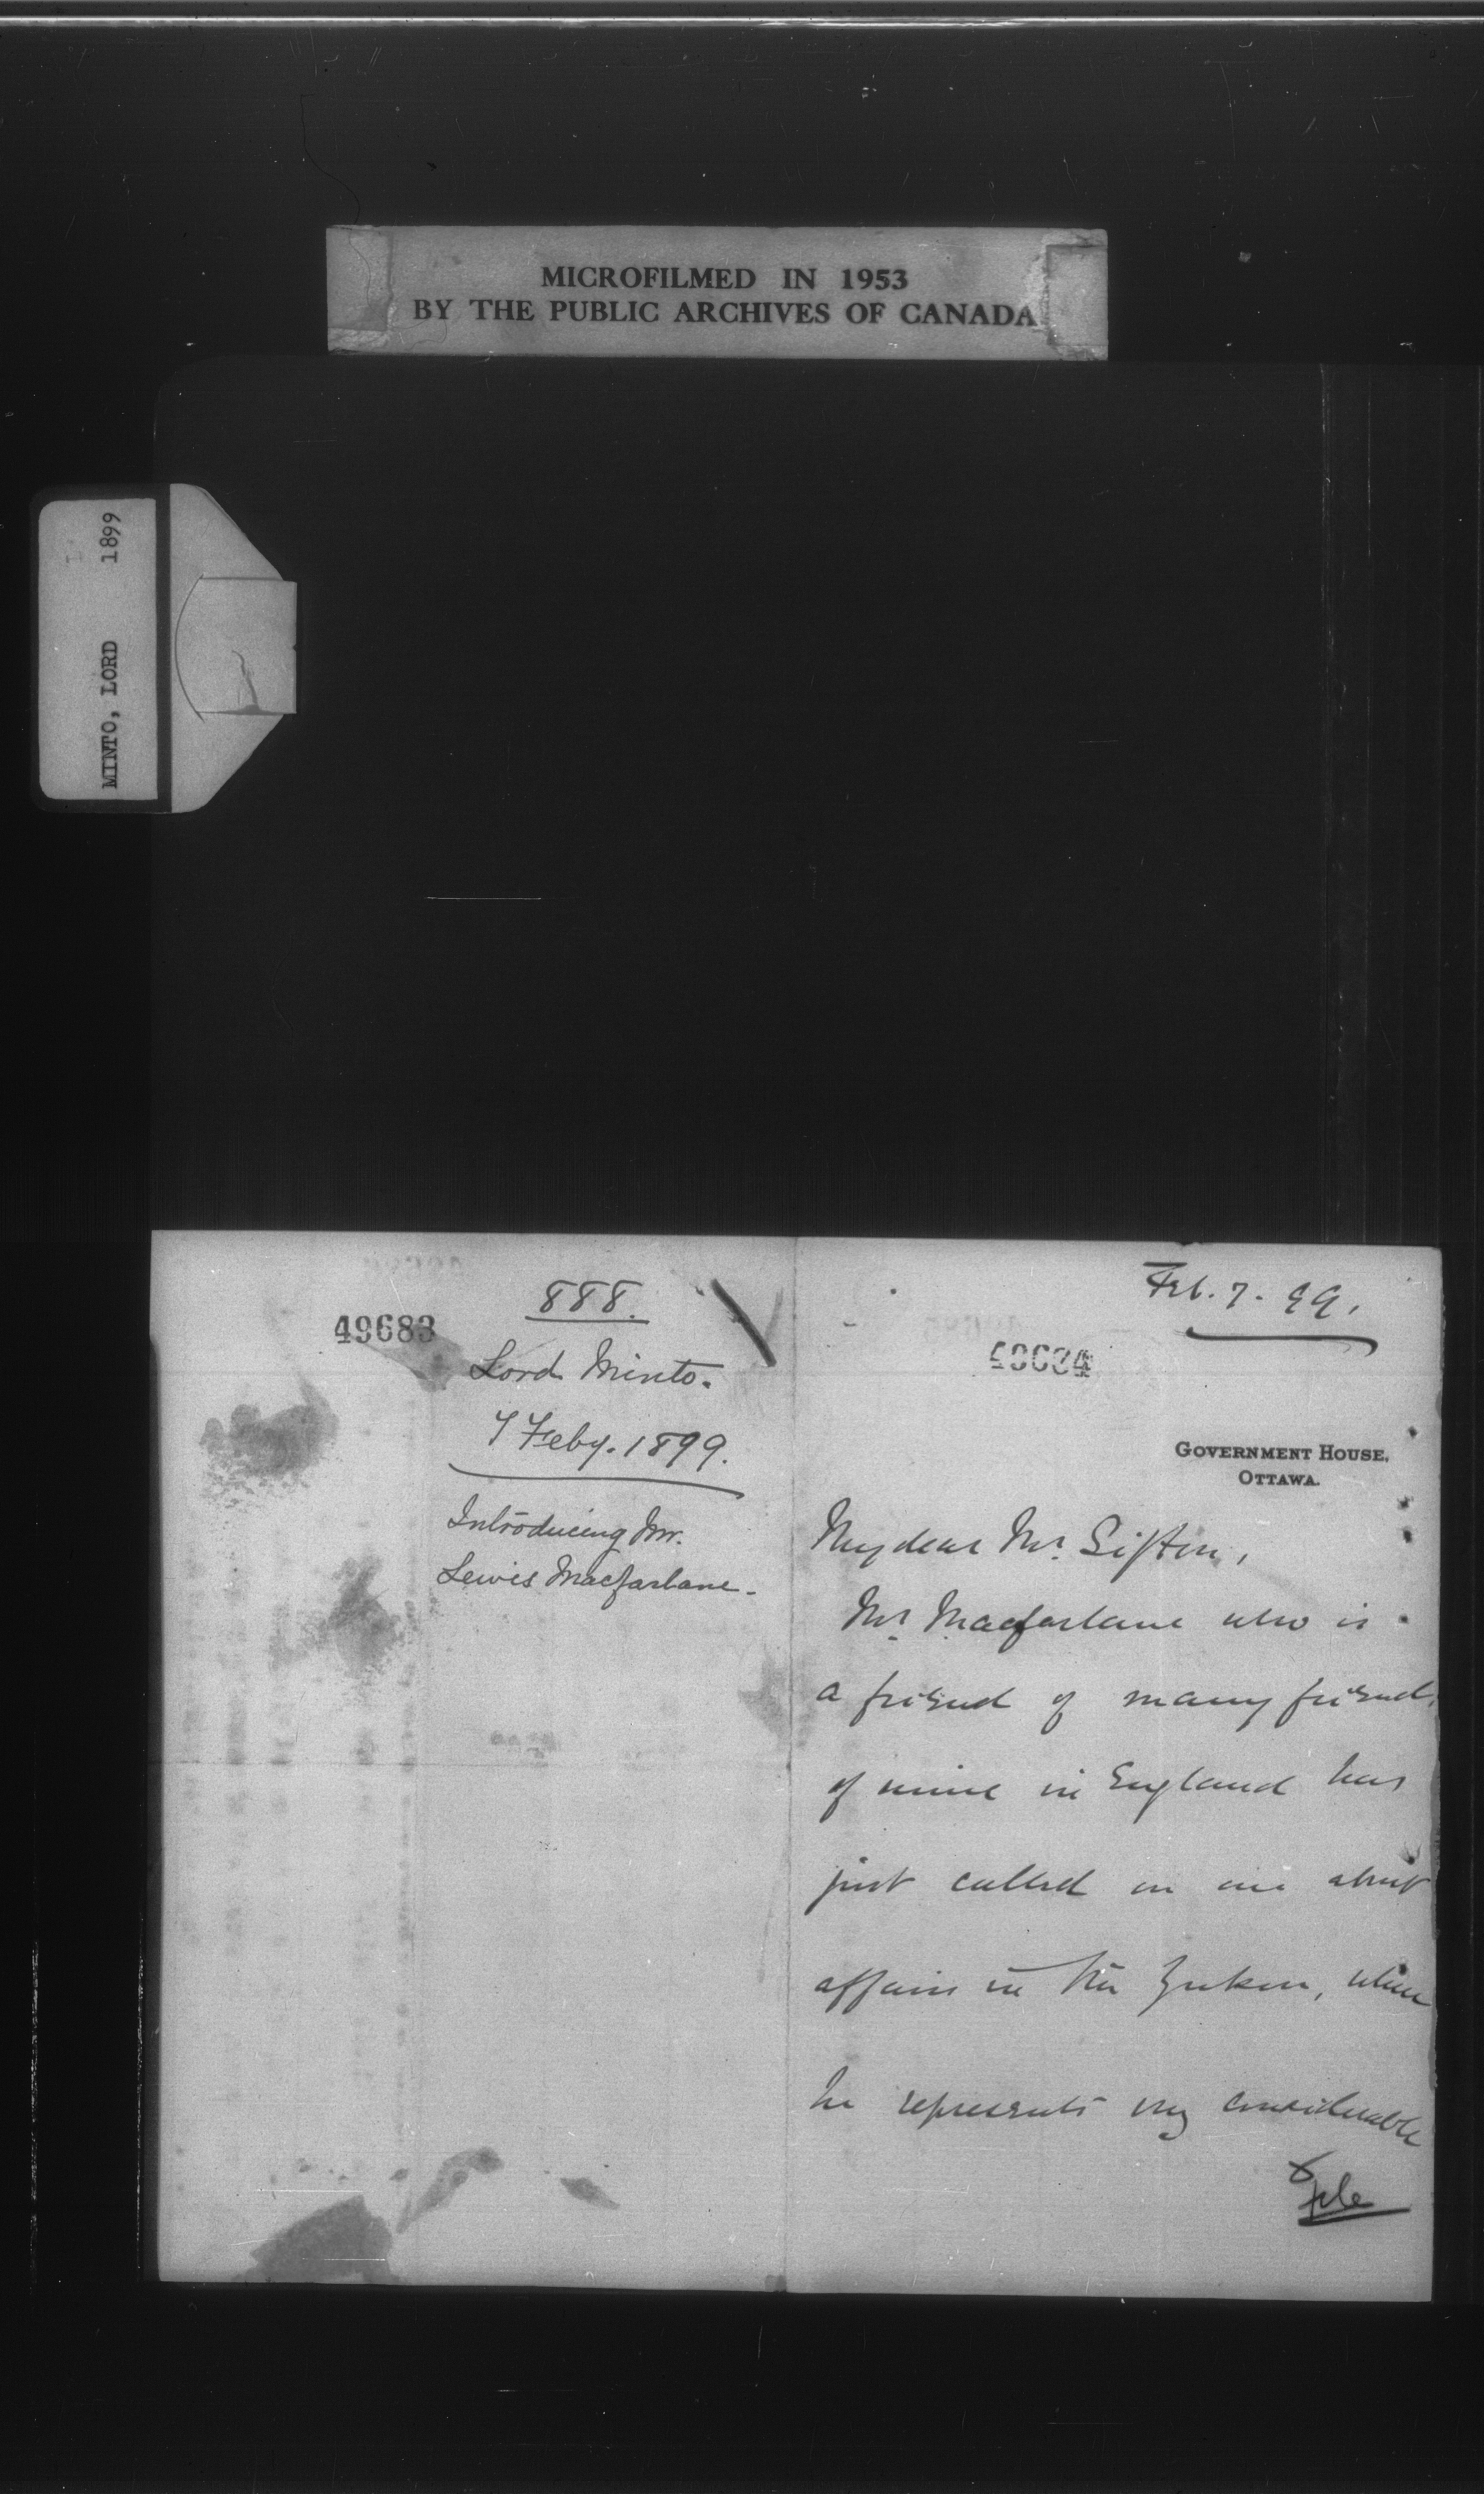 MICROFILMED IN 1953
BY THE PUBLIC ARCHIVES OF CANADA
MINTO, LORD 1899
888.
49683
Lord Minto.
7 Feby. 1899.
Introducing Mr.
Lewis Macfarlane.
Feb. 7. 99.
49684
GOVERNMENT HOUSE,
OTTAWA.
My dear Mr. Sifton,
Mr. Macfarlane who is
a friend of many friends
of mine in England has
just called on me about
affairs in the Yukon, where
he represents very considerable
File